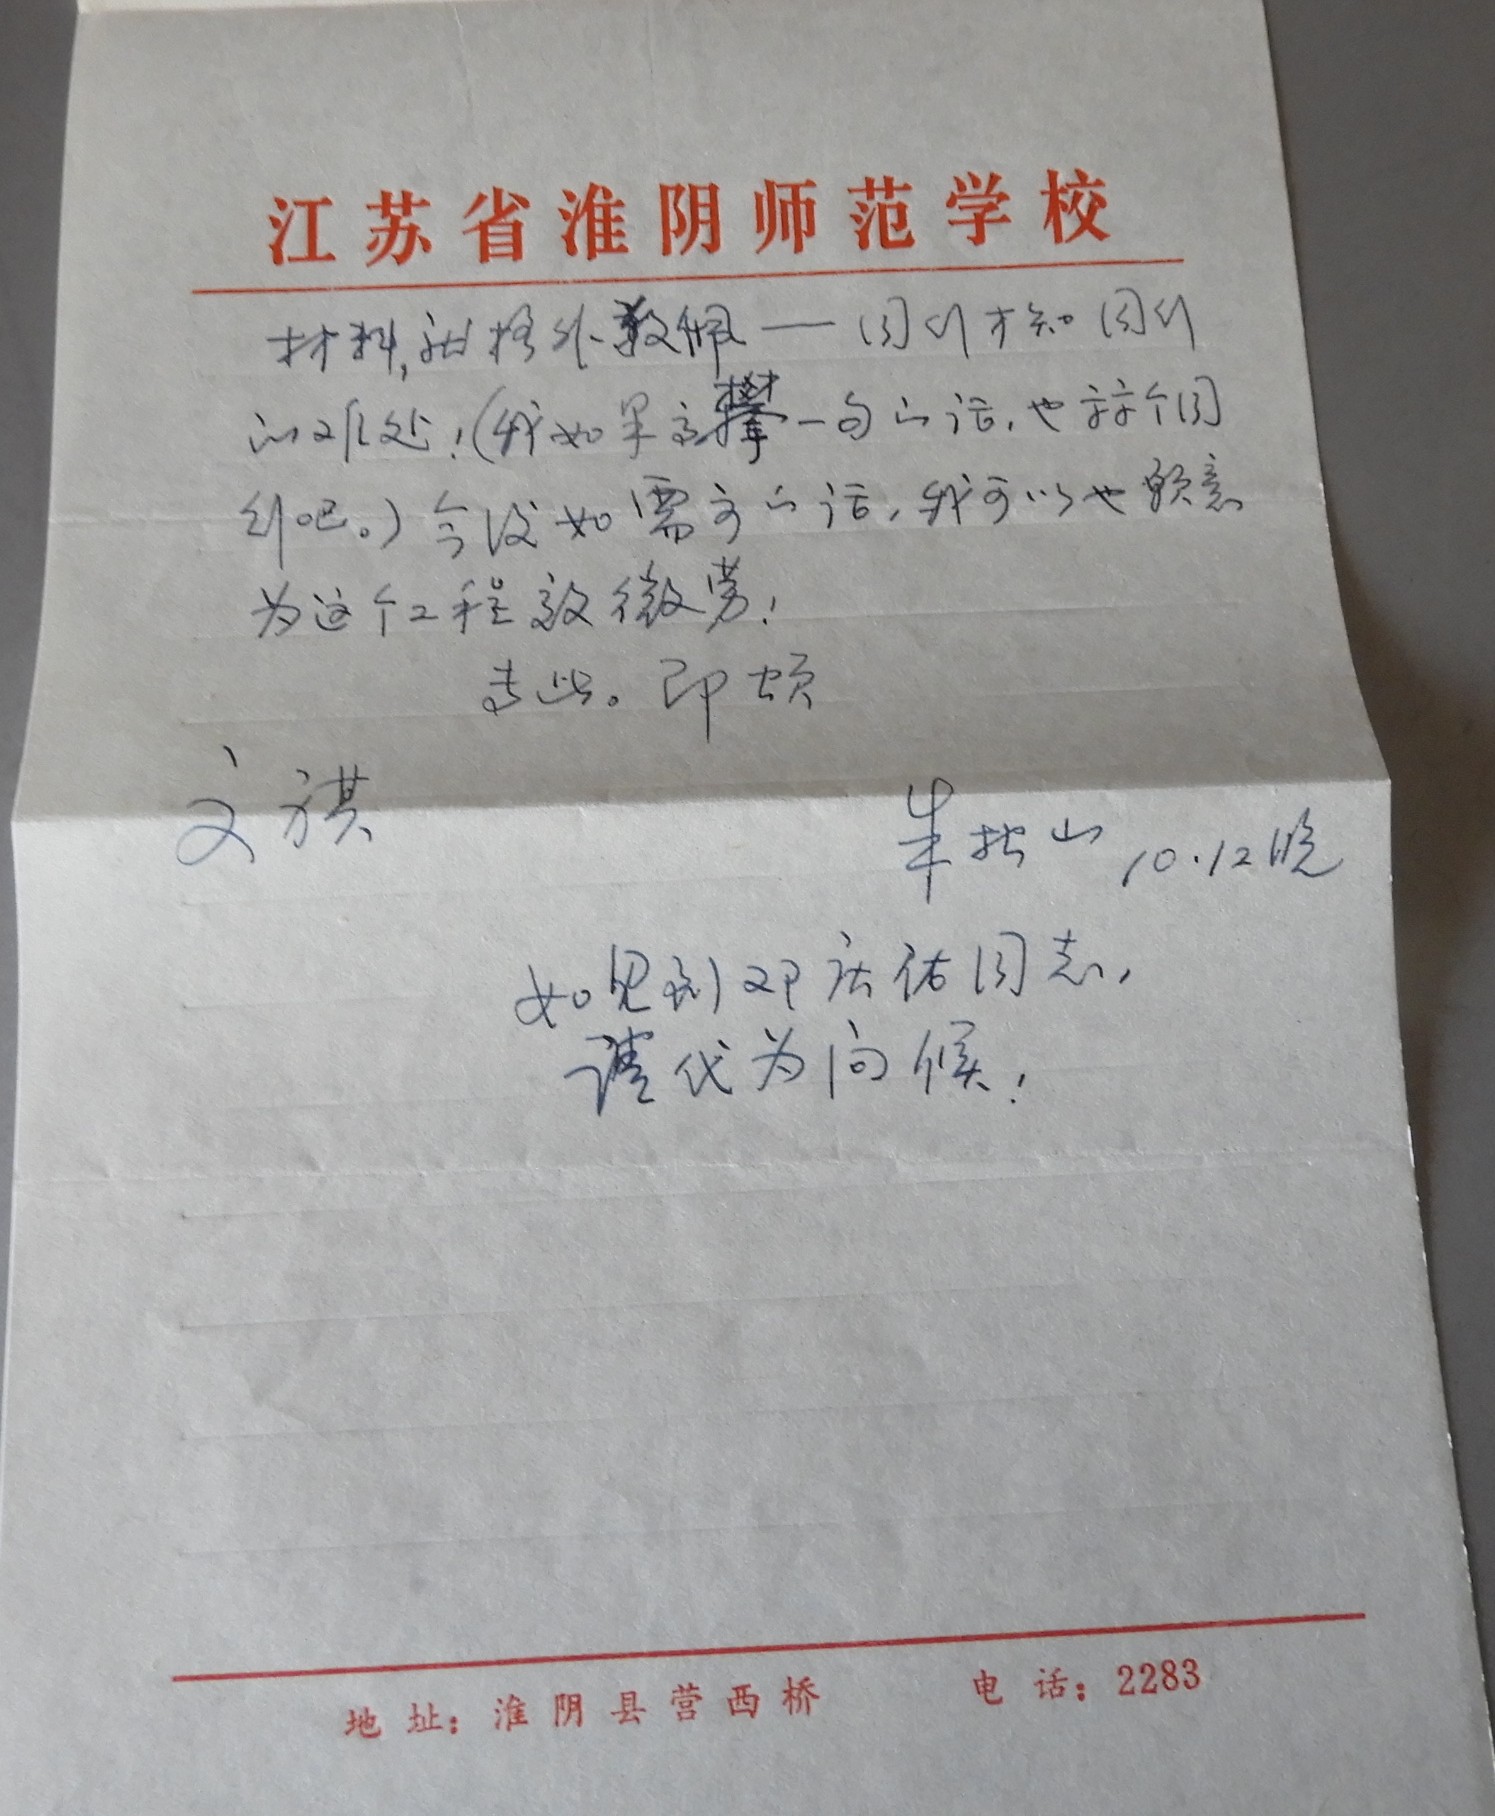 江苏省淮阴师范学校
材料，就格外敬佩——同行才知同行
的难处！（我如果高攀一句的话，也算个同
行吧。）今后如需要的话，我可以也愿意
为这个工程效微劳！
专此。即颂
文祺
朱 山 10.12晚
如见到邓庆佑同志，
请代为问候！
地址：淮阴县营西桥 电话：2283